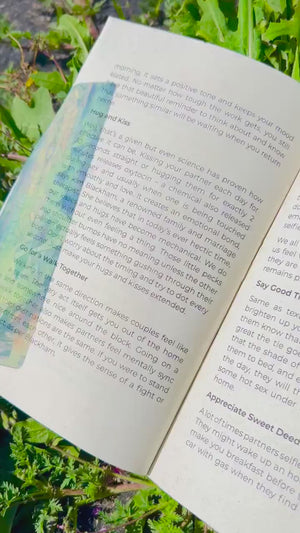 morning, it sets a positive tone and keeps your mood
elated. No matter how tough the work gets, you still
that beautiful reminder to think about and know
something similar will be waiting when you return
Hug and Kiss
that's a given but even science has proven how
it can be. Kissing your partner each day for
straight or hugging them for exactly 2
releases oxytocin - a chemical also released
and usually when one is being touched
and low, it creates an emotional bond.
Blackham, a renowned family and marriage
he believes that in today's over hectic time,
hugs have become mechanical. We do
even feeling a thing. Those little pecks
bumps have no meaning unless the other
feels something pushing through their
worry about the timing and try to dot every
make your hugs and kisses extended.
Go for a Walk Together
same direction makes couples feel like
act. It gets you out of the home
nice around the block. Going on a
also makes partners feel mentally sync
are the same. If you were to stand
other, it gives the sense of a fight or
Blackham.
Say Good
Same as
brighten up
them know
great the tie go
that the shade of
them to bed, and
the day, they will
some hot sex under
home.
Appreciate Sweet Deeds
A lot of times partners selfl
They might wake up an ho
make you breakfast before
car with gas when they find